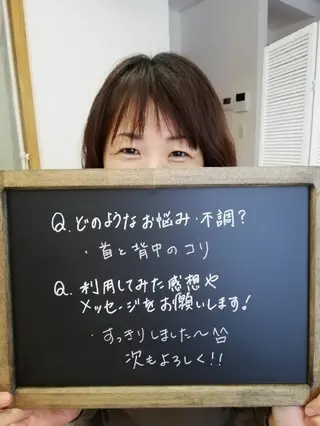 Q. どのようなお悩み・不調?
・首と背中のコリ
Q. 利用してみた感想や
メッセージをお願いします!
・すっきりしました〜^^
次もよろしく!!